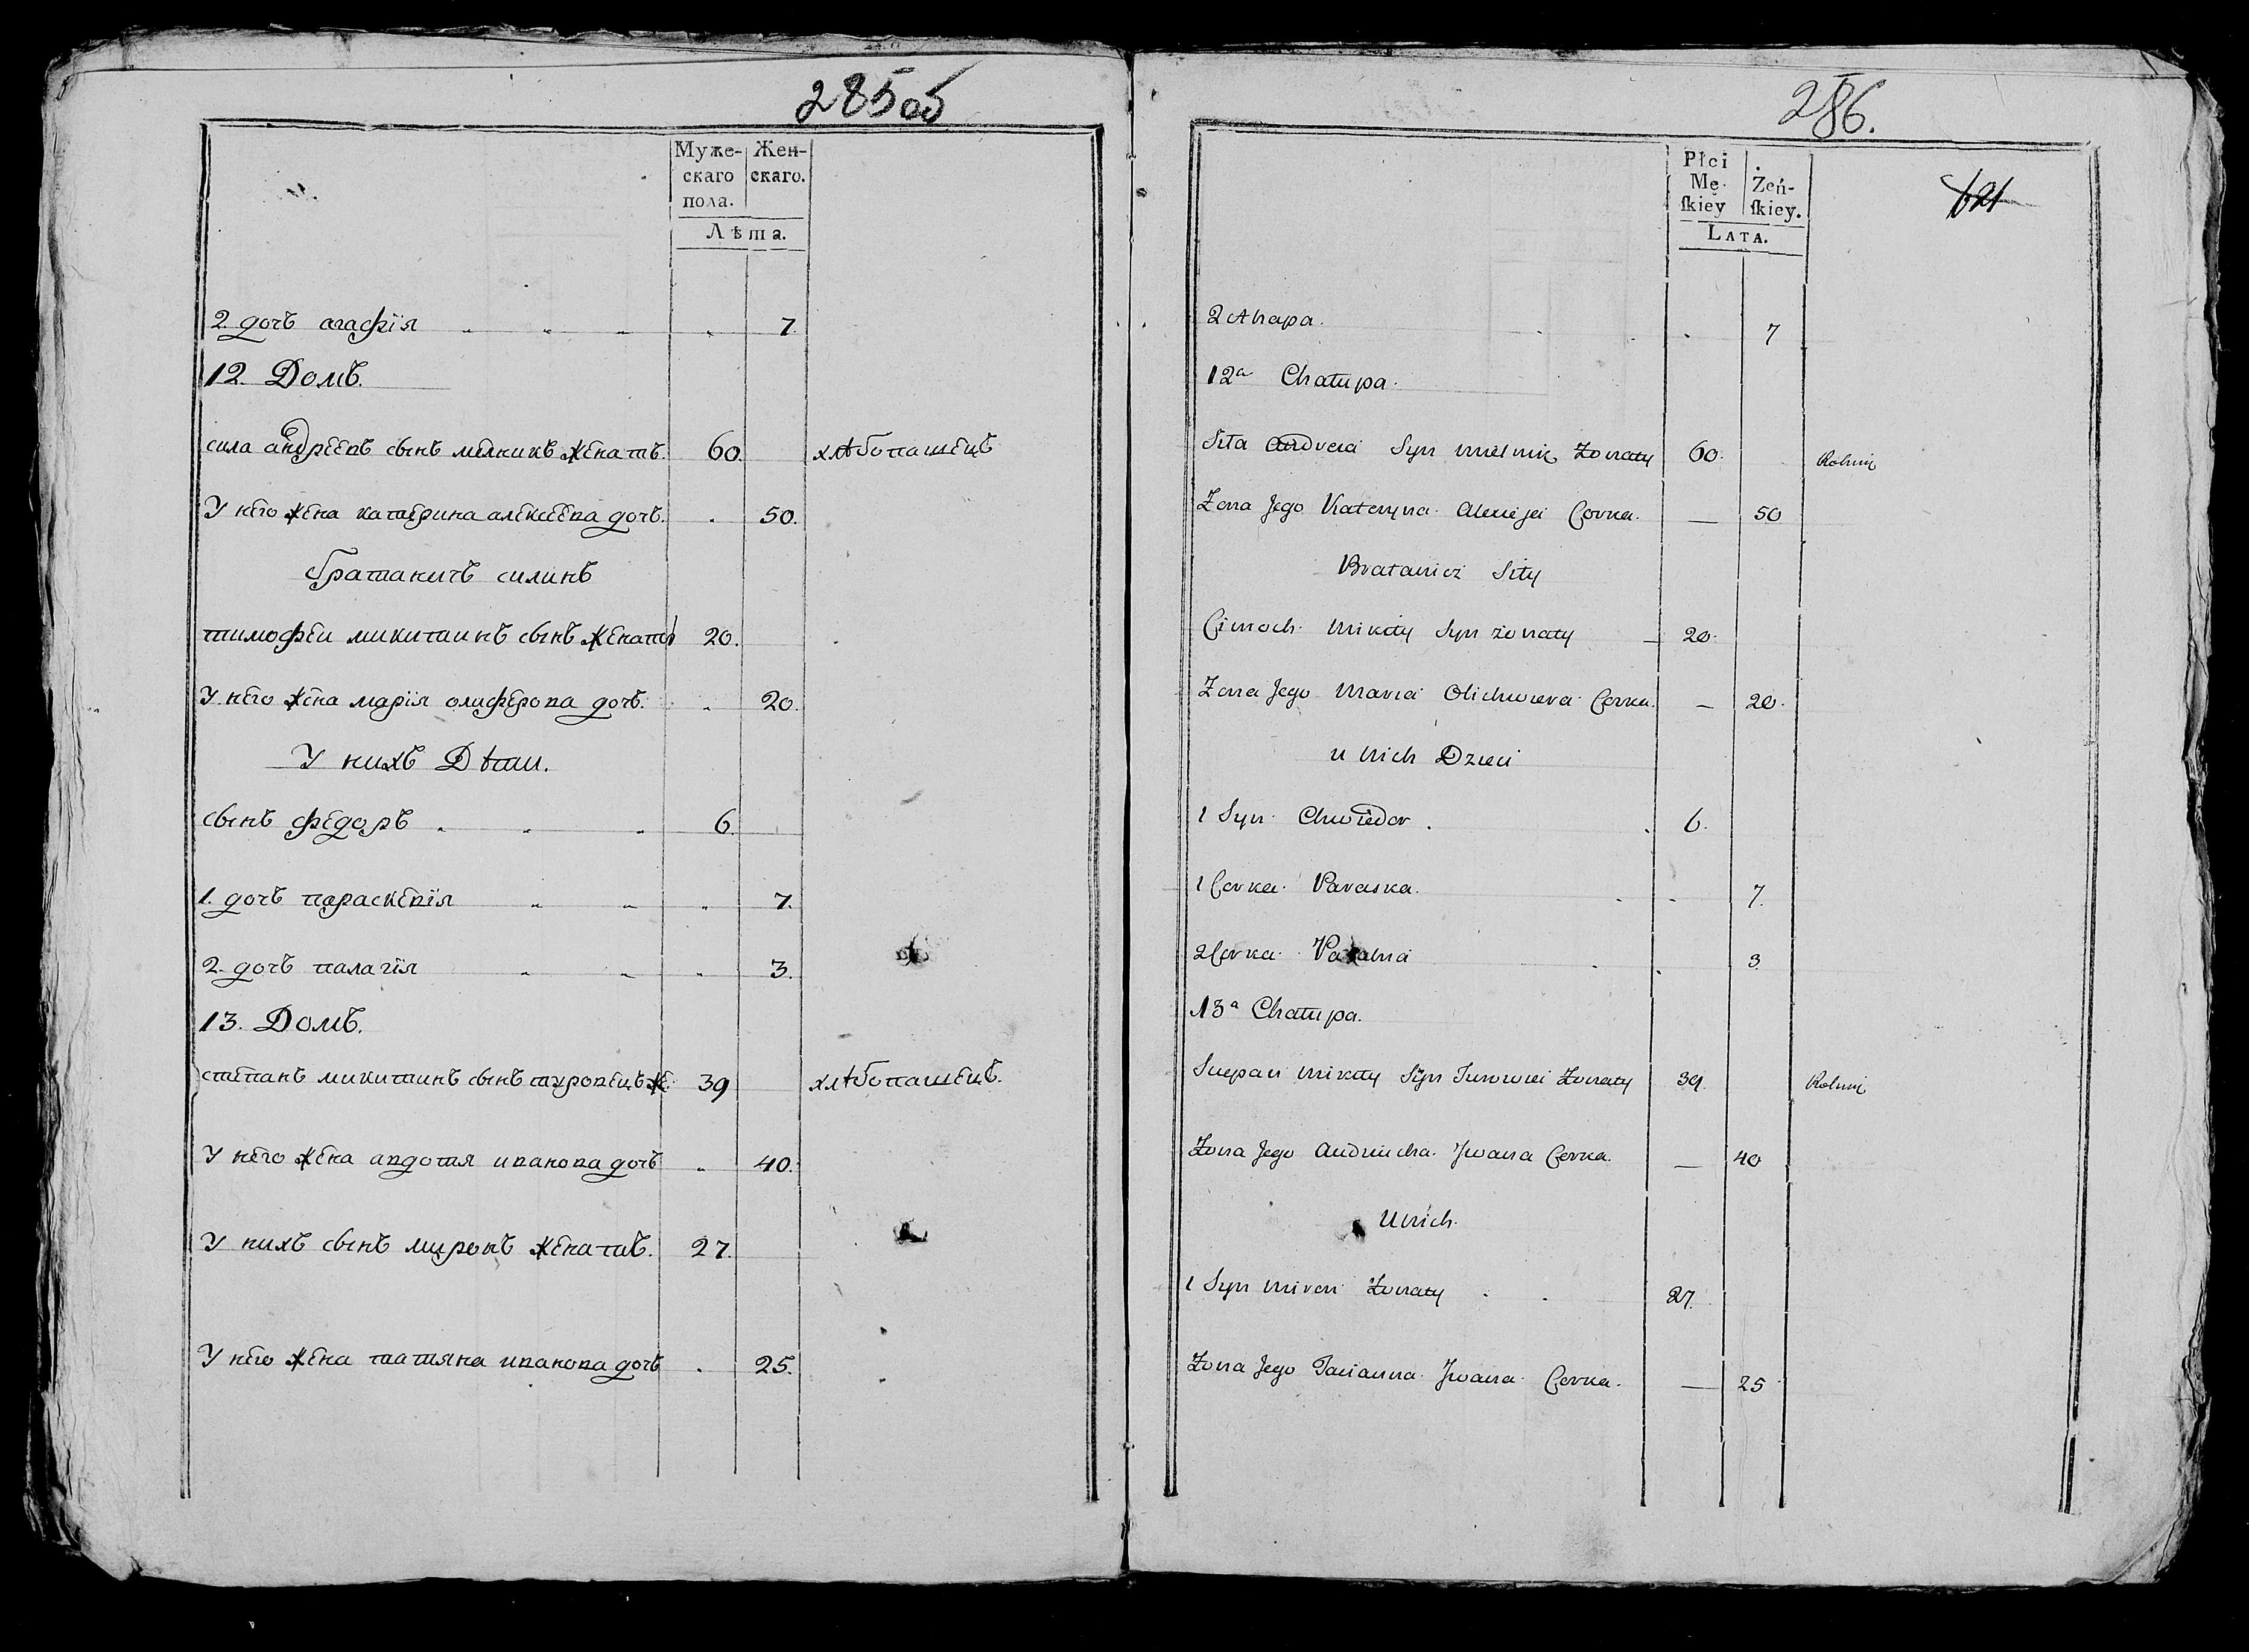 285об
Муже- Жен-
скаго скаго.
пола.
Лѣта.
2. дочь агафїя 7.
12. Домъ.
сила андрѣевъ сынъ мелникъ женатъ. 60. хлѣбопашецъ
У него жена катерина алексѣева дочь. 50.
братаничь силинъ
тимофеи микитинъ сынъ женатъ 20.
У него жена марїя олиферова дочь. 20.
У нихъ Дѣти.
сынъ федоръ 6.
1. дочь параскевїя 7.
2. дочь палагїя 3.
13. Домъ.
степанъ микитинъ сынъ туровецъ же. 39 хлѣбопашецъ.
У него жена авдотя иванова дочь 40.
У нихъ сынъ миронъ женатъ. 27.
У него жена татяна иванова дочь 25.
286.
Płci
Mę- Żeń-
skiey skiey.
LATA.
621
2 Ahapa. 7
12a Chałupa.
Siła Andreia Syn Mielnik Żonaty 60. Rolnik
Żona Jego Kateryna Alexieja Corka. — 50
Bratanicz Siły
Cimoch Mikity Syn żonaty — 20.
Żona Jego Maria Olichwiera Corka. — 20.
u nich Dzieci
1 Syn Chwiedor. 6.
1 Corka Paraska. 7.
2 Corka 3.
13a Chałupa.
Sciepan Mikity Syn Żonaty 39. Rolnik
Żona Jego Iwana Corka. — 40
U nich.
1 Syn Miron Żonaty 27.
Żona Jego Tacianna Iwana Corka. — 25